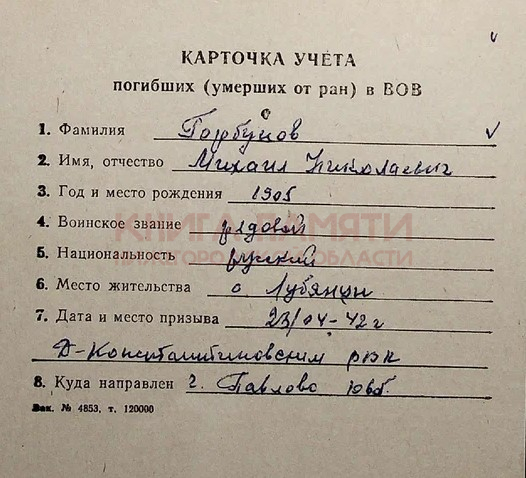 КАРТОЧКА УЧЁТА
погибших (умерших от ран) в ВОВ
1. Фамилия Горбунов
2. Имя, отчество Михаил Николаевич
3. Год и место рождения 1905
КНИГА ПАМЯТИ
4. Воинское звание рядовой
НИЖЕГОРОДСКОЙ ОБЛАСТИ
5. Национальность русский
6. Место жительства с. Лубянцы
7. Дата и место призыва 23/04-42 г
Д-Константиновским рвк
8. Куда направлен г. Павлово
Зак. № 4853, т. 120000